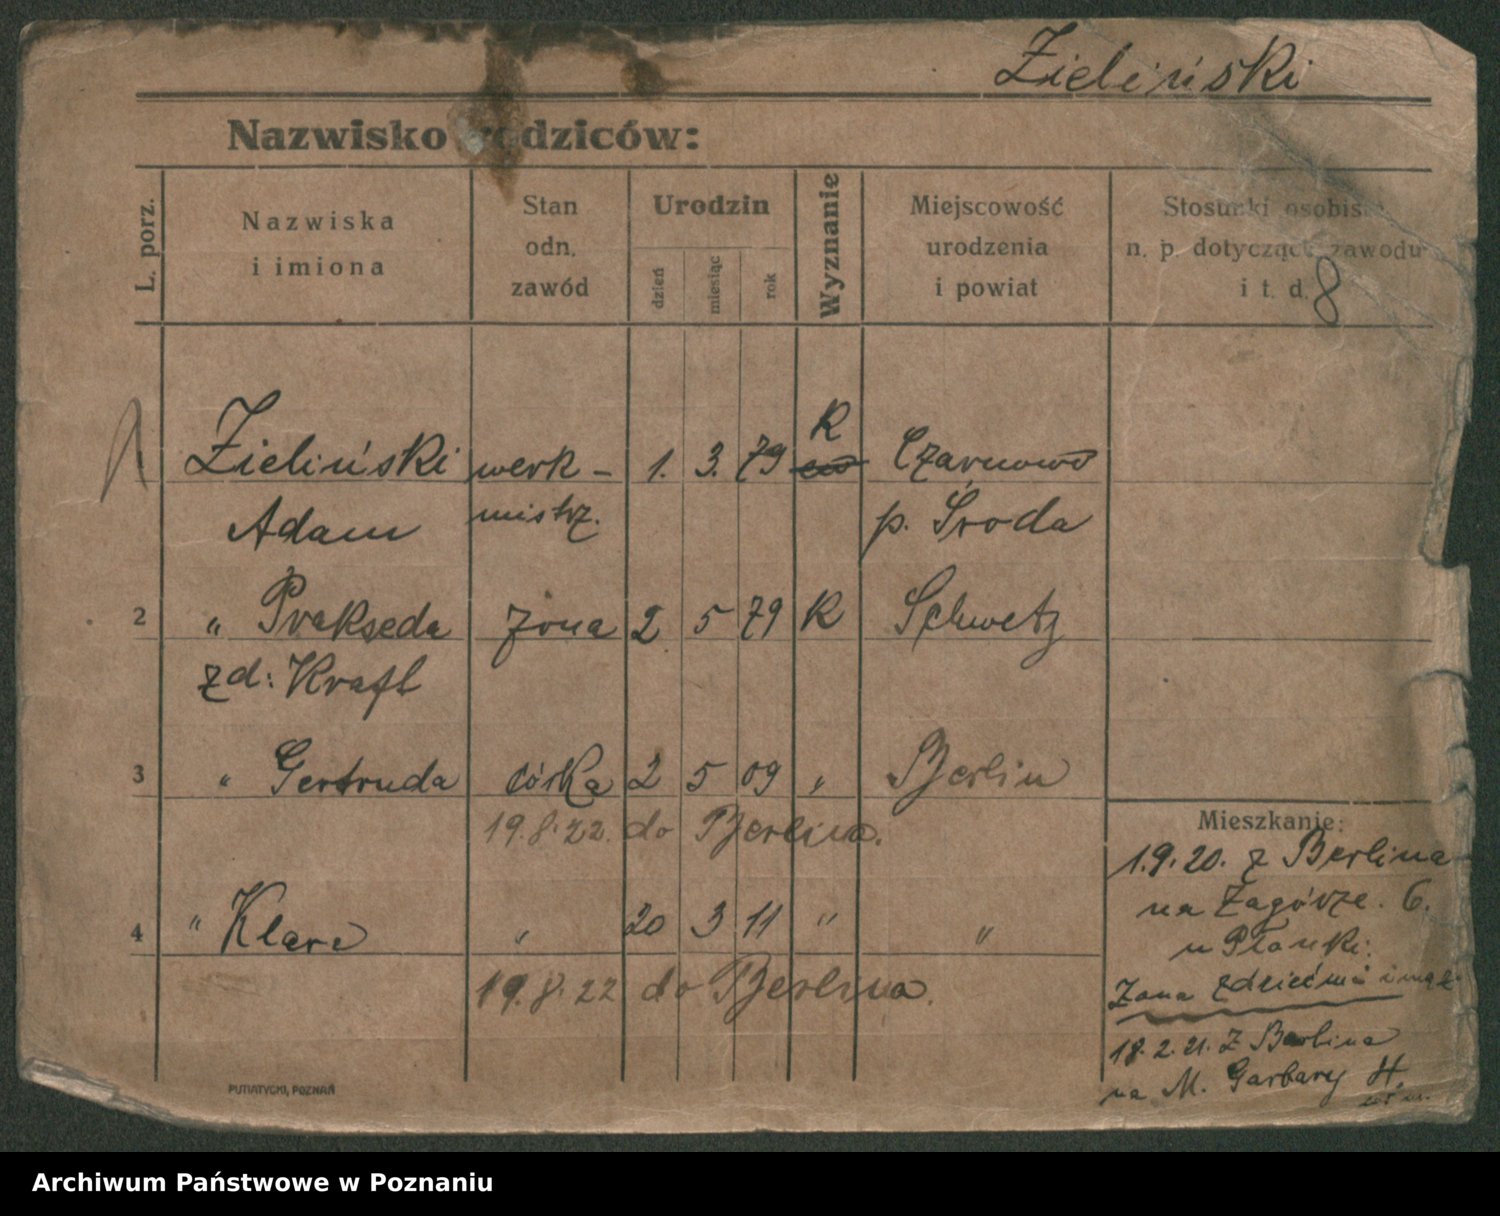 Zieliński
Nazwisko rodziców:
L. porz.
Nazwiska
i imiona
Stan
odn.
zawód
Urodzin
dzień
miesiąc
rok
Wyznanie
Miejscowość
urodzenia
i powiat
Stosunki osobiste
n. p. dotyczące zawodu
i t. d.
8
Zieliński werk- 1. 3. 79 K Czarnowo
Adam mistrz. p. Środa
2 " Prakseda żona 2 5 79 K Schwetz
zd: Kraft
3 " Gertruda córka 2 5 09 " Berlin
19.8.22. do Berlina.
4 " Klara " 20 3 11 " "
19.8.22 do Berlina.
Mieszkanie:
1.9.20. z Berlina
na Zagórze. 6.
u Planki.
Żona z dziećmi i mąż
18.2.21. z Berlina
na M. Garbary
PUTIATYCKI, POZNAŃ
Archiwum Państwowe w Poznaniu